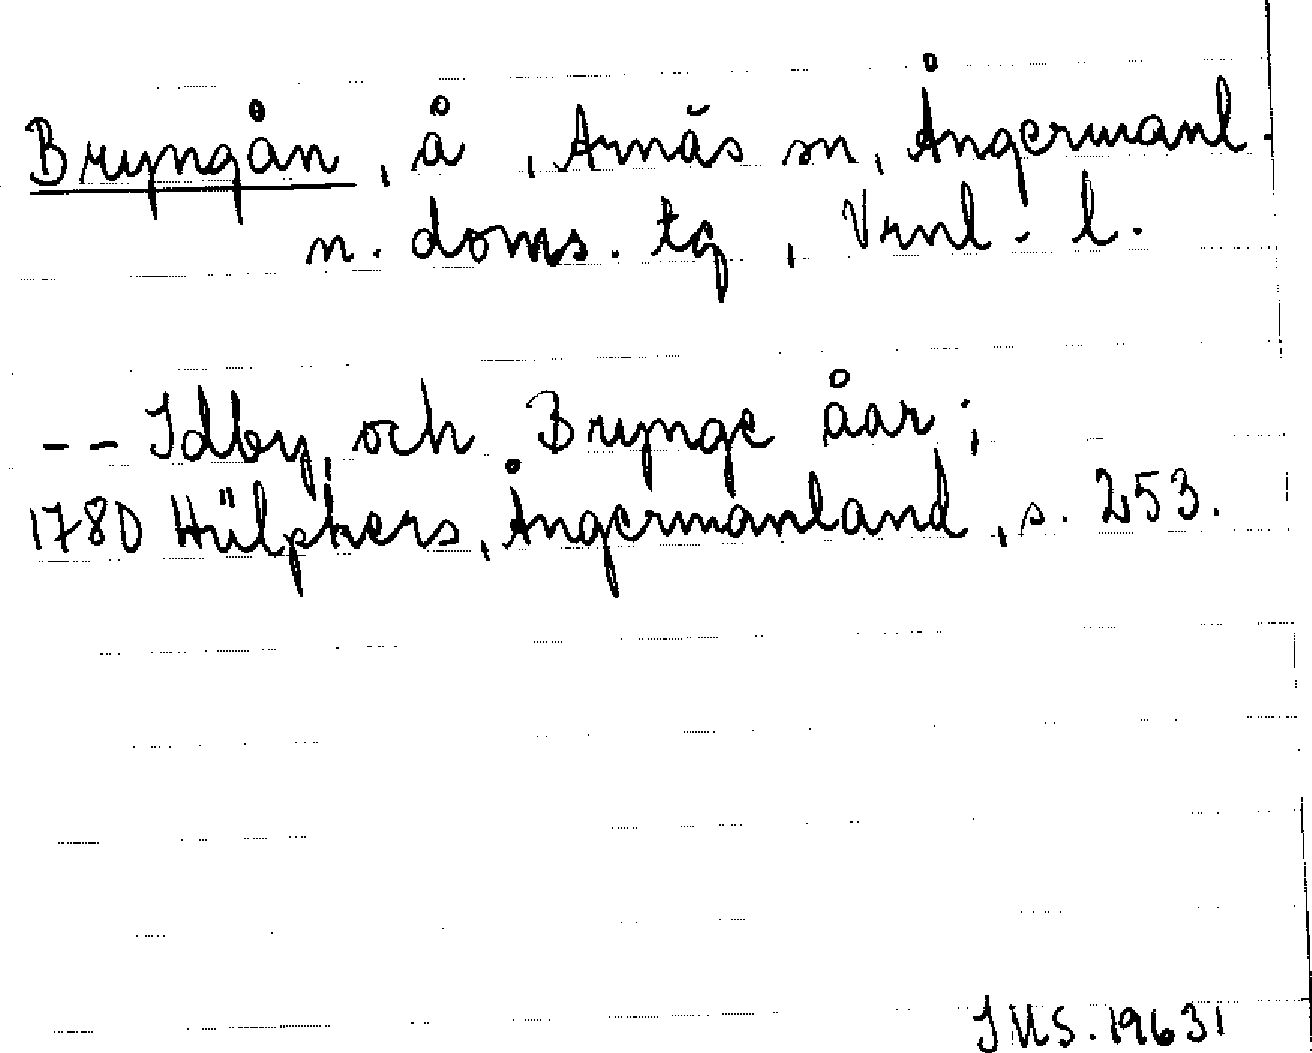 Bryngån, å, Arnäs sn, Ångermanl.
n. doms. tg, Vrnl-l.
-- Idby och Brynge åar;
1780 Hülphers, Ångermanland, s. 253.
JUS. 19631